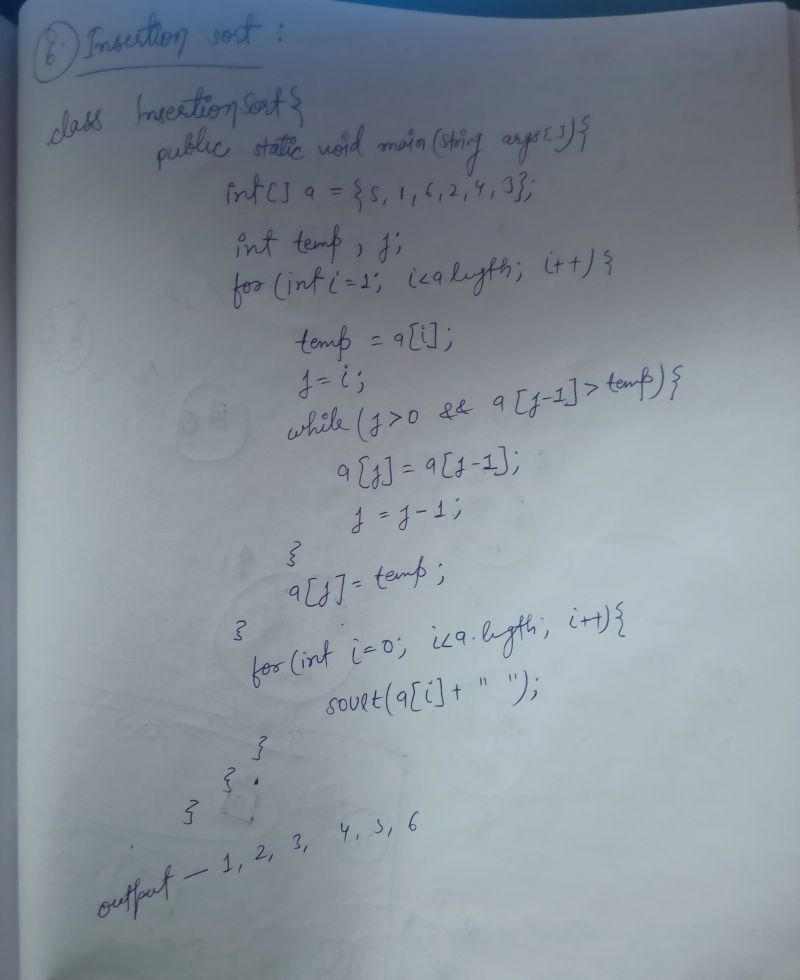 6. Insertion sort :
class InsertionSort{
public static void main(string args[]){
int[] a = {5, 1, 6, 2, 4, 3};
int temp, j;
for (int i=1; i<a.length; i++){
temp = a[i];
j = i;
while (j>0 && a[j-1]>temp){
a[j] = a[j-1];
j = j-1;
}
a[j] = temp;
}
for (int i=0; i<a.length; i++){
sout(a[i]+ " ");
}
}
}
output — 1, 2, 3, 4, 5, 6